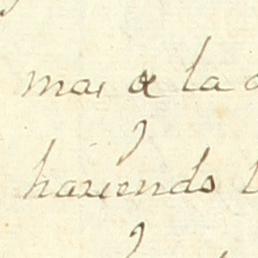 mas de la
haziendo